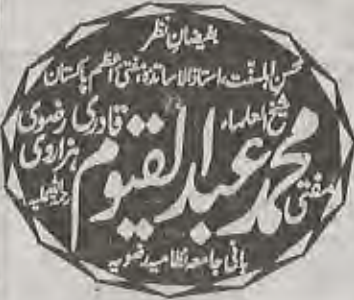 بفیضانِ نظر
محسنِ اہلسنّت، استاذ الاساتذہ، مفتی اعظم پاکستان
شیخ العلماء
مفتی محمد عبد القیوم قادری رضوی ہزاروی
رحمۃ اللہ علیہ
بانی جامعہ نظامیہ رضویہ